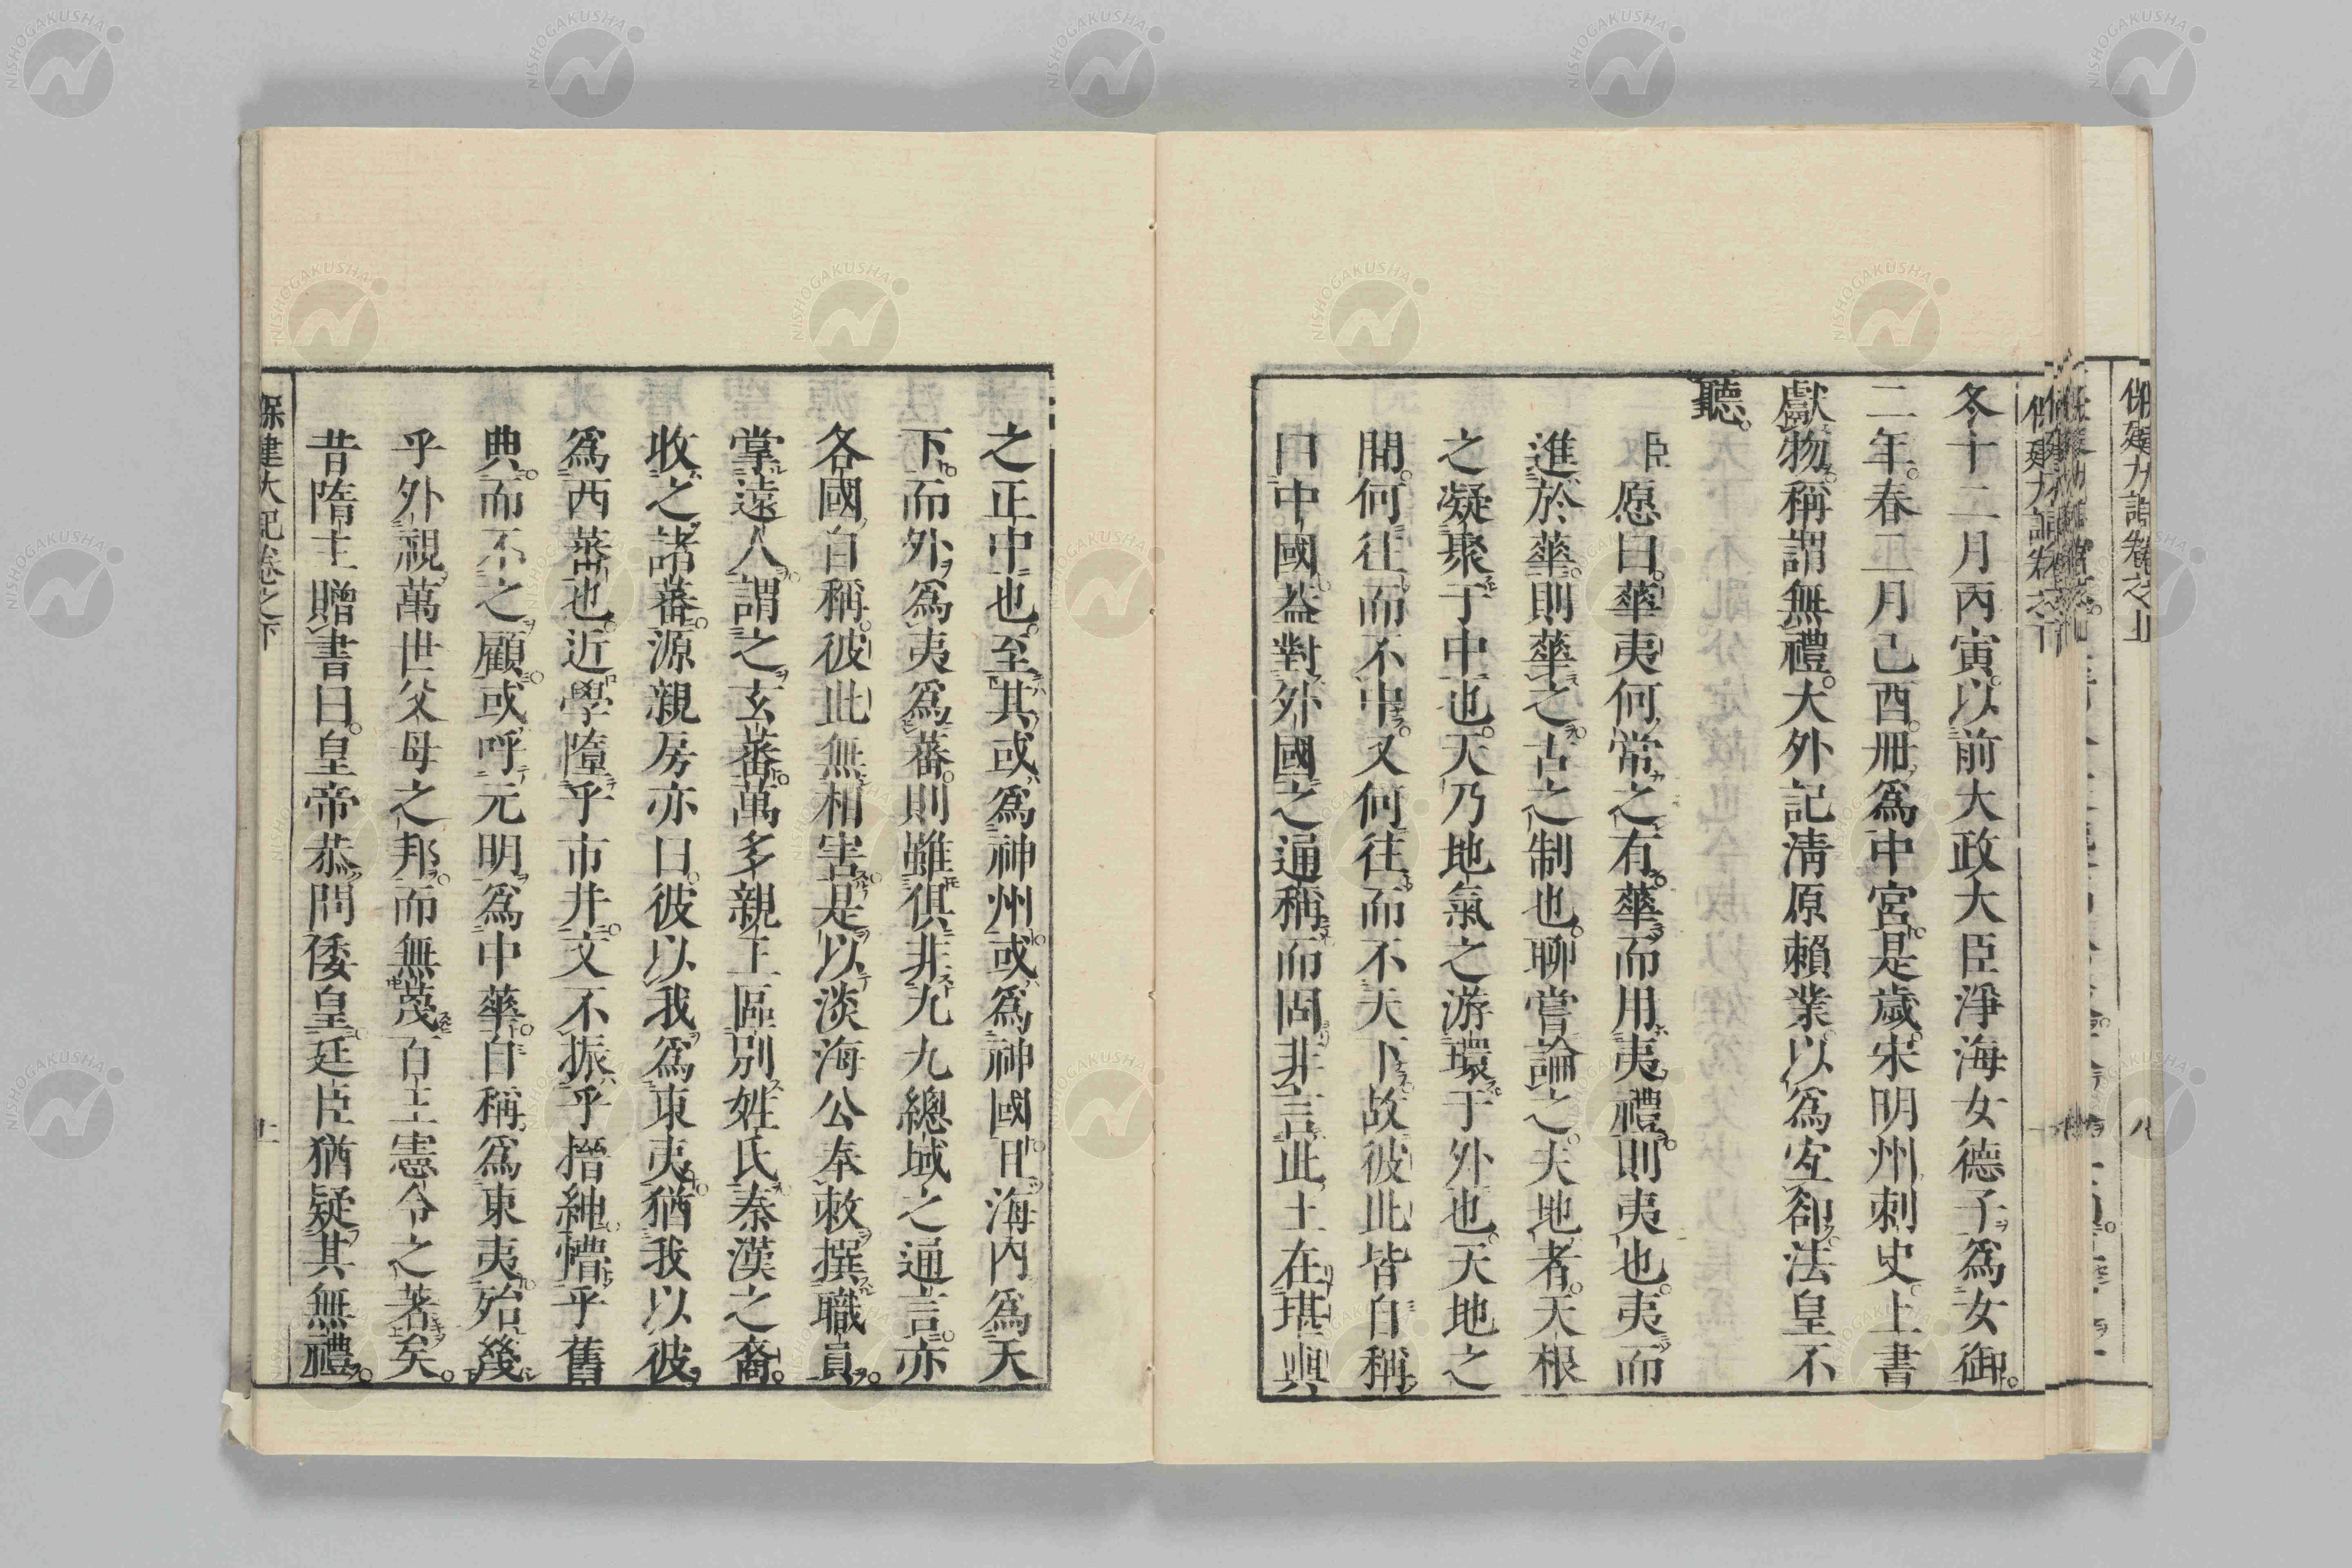 冬十二月丙寅。以前大政大臣淨海女德子爲女御。
二年。春二月己酉。冊爲中宮。是歲。宋明州刺史。上書
獻物。稱謂無禮。大外記淸原賴業。以爲宜卻。法皇不
聽。
臣愿曰。華夷何常之有。華而用夷禮。則夷也。夷而
進於華。則華之。古之制也。聊嘗論之。夫地者。天根
之凝聚于中也。天乃地氣之游環于外也。天地之
間。何往而不中。又何往而不天下。故彼此皆自稱
曰中國。蓋對外國之通稱。而固非言此土在堪輿
之正中也。至其或爲神州。或爲神國。日海內爲天
下。而外爲夷爲蕃。則雖俱非九九總域之通言。亦
各國自稱。彼此無相害。是以淡海公奉敕撰職員。
掌遠人。謂之玄蕃。萬多親王區別姓氏。秦漢之裔。
收之諸蕃。源親房亦曰。彼以我爲東夷。猶我以彼
爲西蕃也。近學墮乎市井。文不振乎搢紳。懵乎舊
典。而不之顧。或呼元明爲中華。自稱爲東夷。殆幾
乎外視萬世父母之邦。而無蔑百王憲令之著矣。
昔隋主贈書曰。皇帝恭問倭皇。廷臣猶疑其無禮。
保建大記卷之下
NISHOGAKUSHA